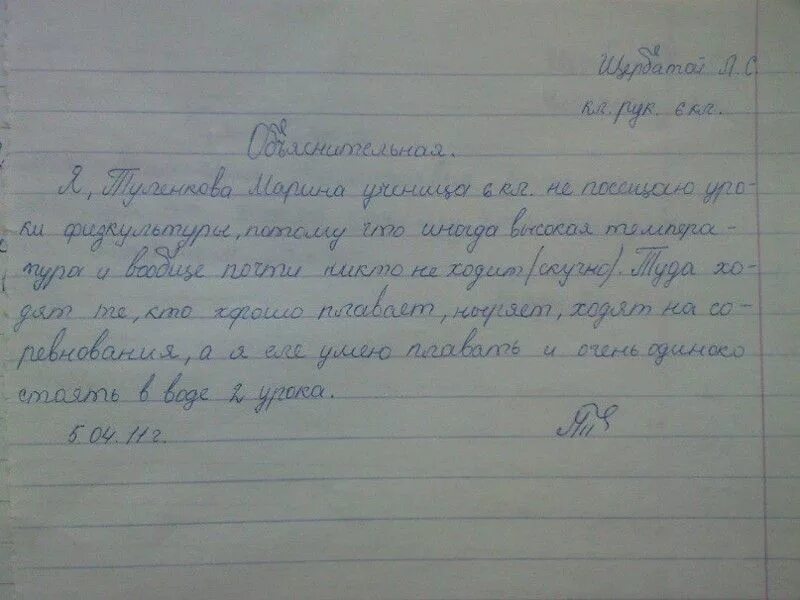 Щербатой Л.С.
кл. рук. 6 кл.
Объяснительная.
Я, Туленкова Марина ученица 6 кл. не посещаю уро-
ки физкультуры, потому что иногда высокая темпера-
тура и вообще почти никто не ходит (скучно). Туда хо-
дят те, кто хорошо плавает, ныряет, ходят на со-
ревнования, а я еле умею плавать и очень одиноко
стоять в воде 2 урока.
5.04.11г.